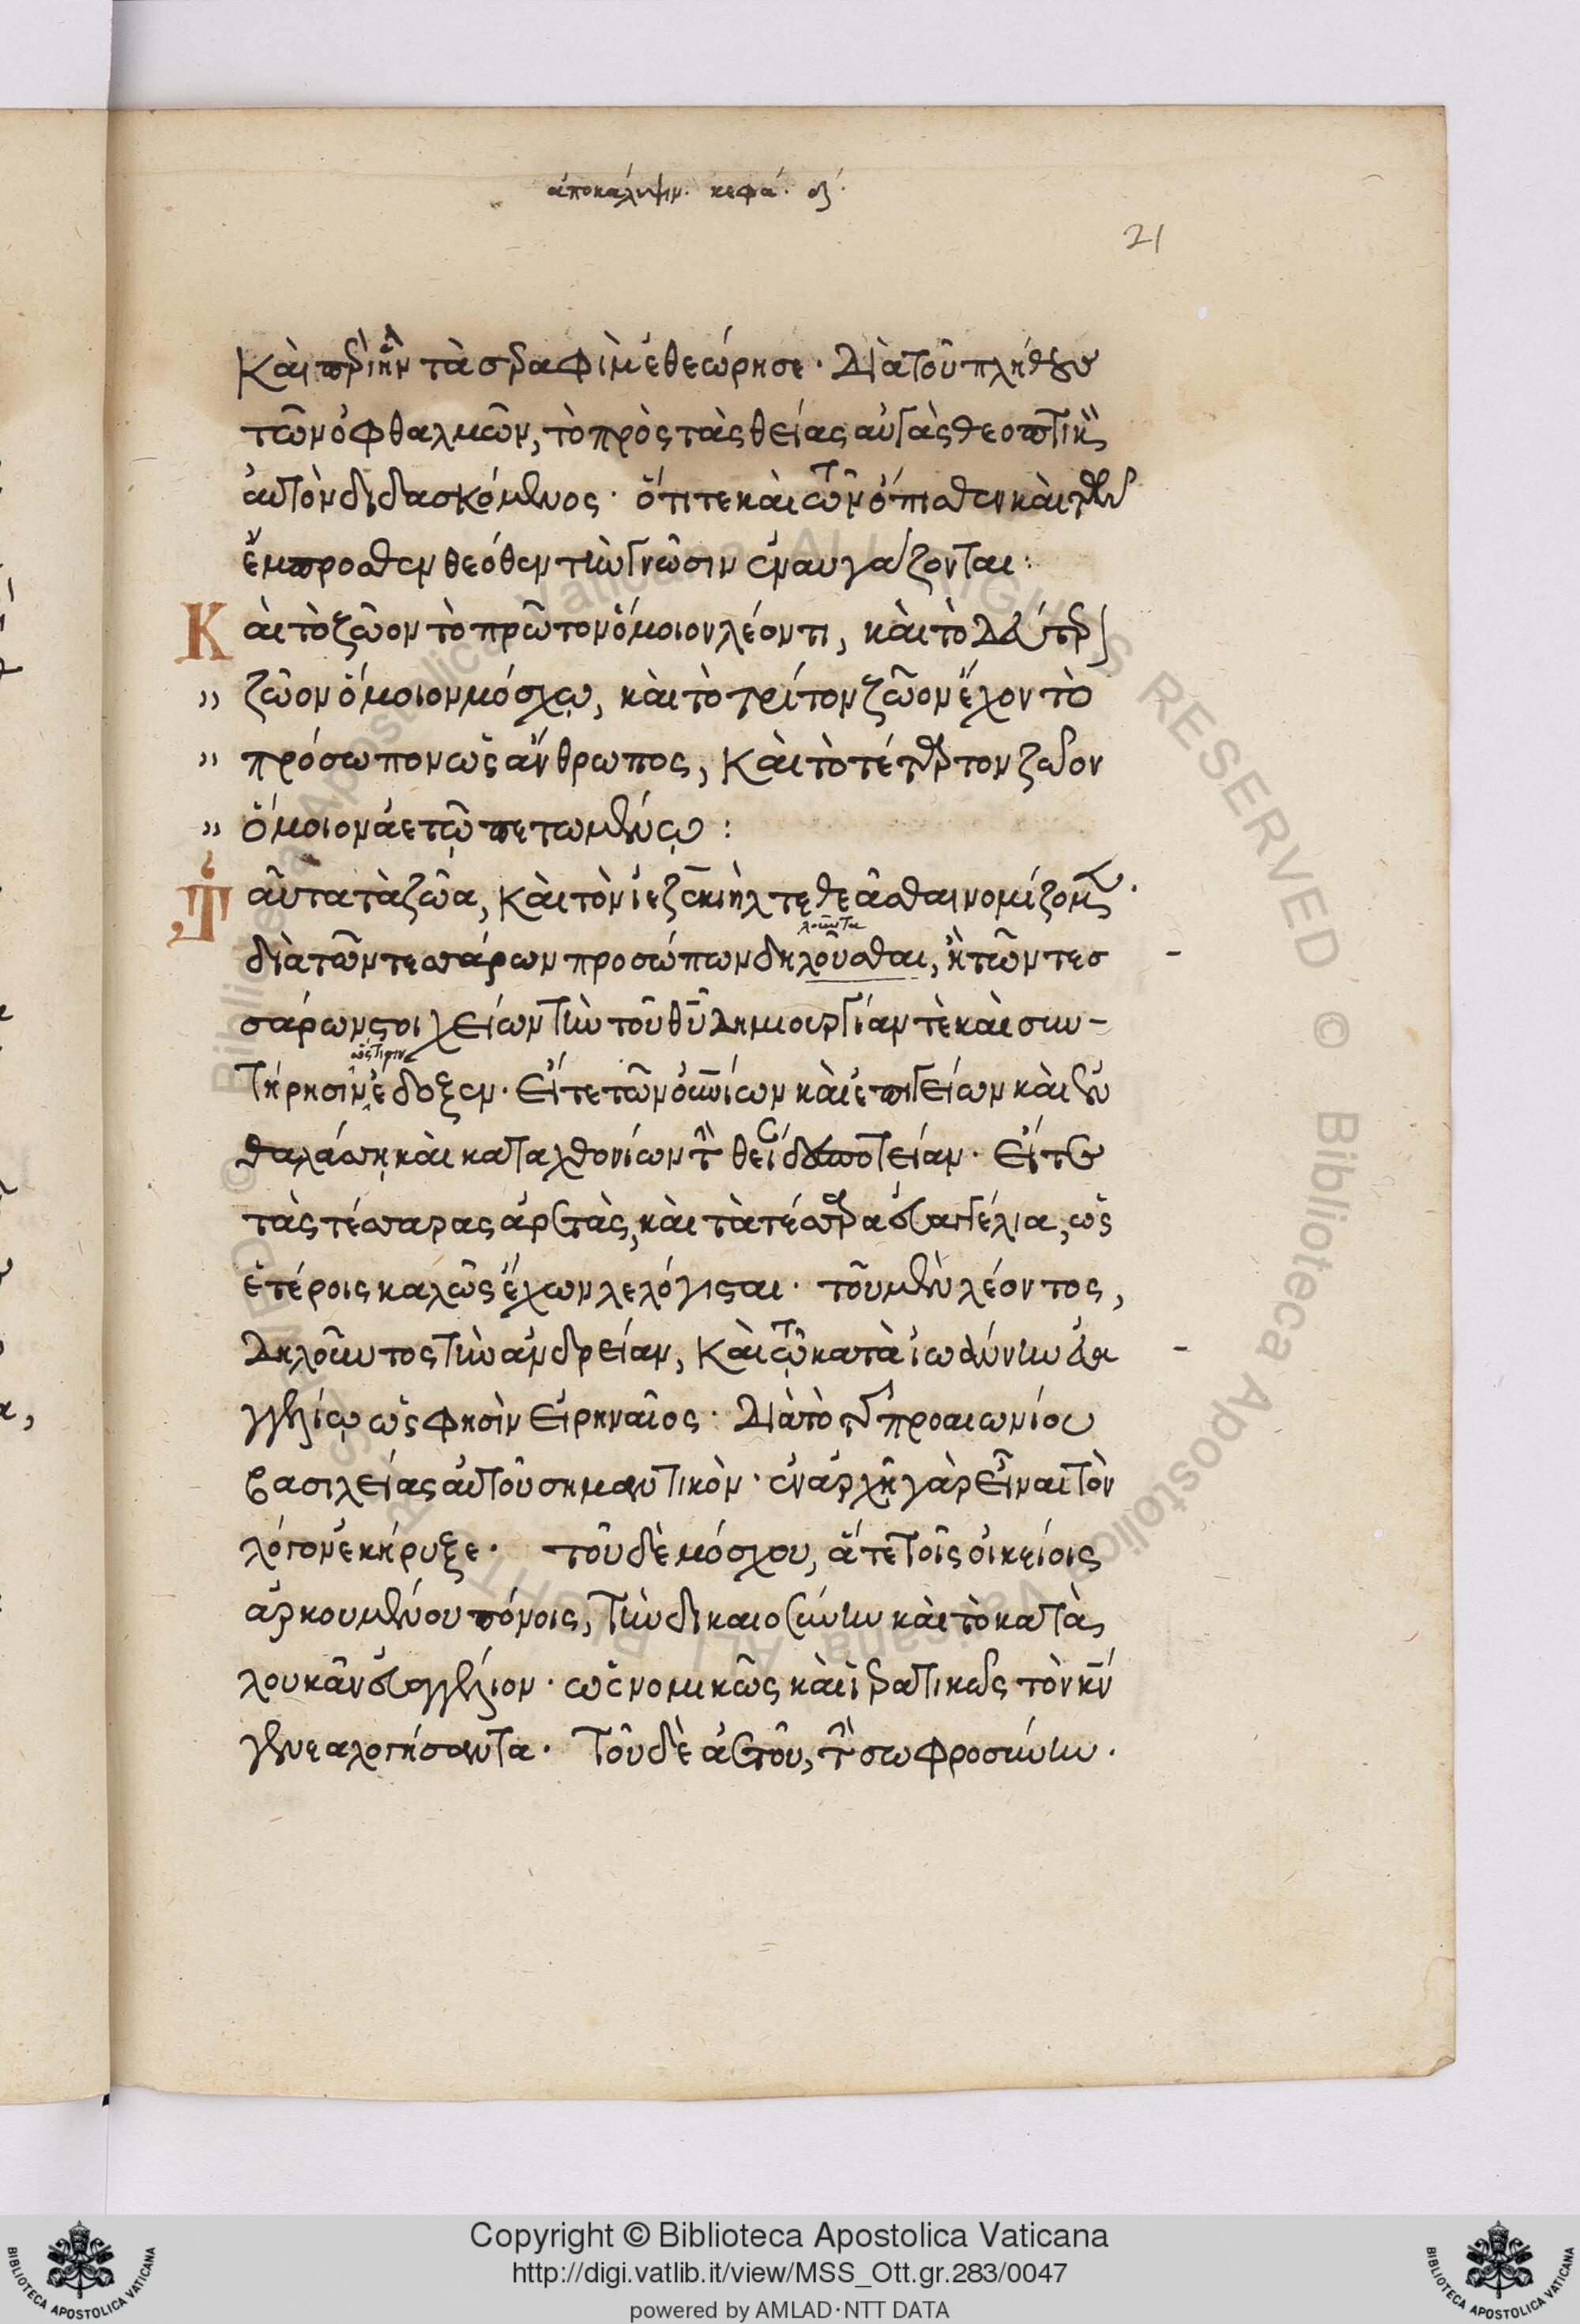 ἀποκάλυψιν. κεφά. 
21
Καὶ περὶ ἣν τὰ σεραφὶμ ἐθεώρησε· Διὰ τοῦ πλήθους
τῶν ὀφθαλμῶν, τὸ πρὸς τὰς θείας αὐγὰς θεοπτικὸν
αὐτὸν διδασκόμενος· ὅτι τε καὶ τῶν ὄπισθεν καὶ τῶν
ἔμπροσθεν θεόθεν τὴν γνῶσιν ἐναυγάζονται:
Καὶ τὸ ζῶον τὸ πρῶτον ὅμοιον λέοντι, καὶ τὸ Δεύτερον
" ζῶον ὅμοιον μόσχῳ, καὶ τὸ τρίτον ζῶον ἔχον τὸ
" πρόσωπον ὡς ἄνθρωπος, Καὶ τὸ τέταρτον ζῶον
" ὅμοιον ἀετῷ πετωμένῳ:
Ταῦτα τὰ ζῶα, Καὶ τὸν ἰεζεκιὴλ τεθεᾶσθαι νομίζομεν.
λοῦντα
διὰ τῶν τεσσάρων προσώπων δηλοῦσθαι, ἢ τῶν τεσ
σάρων στοιχείων τὴν τοῦ θῦ Δημιουργίαν τὲ καὶ συν-
ὥς τισιν
τήρησιν ἔδοξεν. Εἴτε τῶν οὐνίων καὶ ἐπιγείων καὶ ἐν
θαλάσσῃ καὶ καταχθονίων τὴν θείαν δεσποτείαν. Εἴτε
τὰς τέσσαρας ἀρετὰς, καὶ τὰ τέσσαρα εὐαγγέλια, ὡς
ἑτέροις καλῶς ἔχων λελόγισται. τοῦ μὲν λέοντος,
Δηλοῦντος τὴν ἀνδρείαν, Καὶ τῷ κατὰ ἰωάννην εὐα
γγελίῳ ὥς φησὶν Εἰρηναῖος. Διὰ τὸ τῆς προαιωνίου
βασιλείας αὐτοῦ σημαντικὸν. ἐν ἀρχῇ γὰρ εἶναι τὸν
λόγον ἐκήρυξε. τοῦ δὲ μόσχου, ἅτε τοῖς οἰκείοις
ἀρκουμένου πόνοις, τὴν δικαιοσύνην καὶ τὸ κατὰ
λουκᾶν εὐαγγέλιον. ὡς νομικῶς καὶ ἱερατικῶς τὸν κν̄
γενεαλογήσαντα. Τοῦ δὲ ἀετοῦ, τὴν σωφροσύνην.
Copyright © Biblioteca Apostolica Vaticana
http://digi.vatlib.it/view/MSS_Ott.gr.283/0047
powered by AMLAD·NTT DATA
BIBLIOTECA APOSTOLICA VATICANA
BIBLIOTECA APOSTOLICA VATICANA